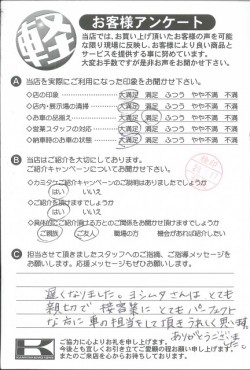 軽
お客様アンケート
当店では、お買い上げ頂いたお客様の声を可能
な限り現場に反映し、お客様により良い商品と
サービスを提供する事に努めています。
大変お手数ですが是非お声をお聞かせ下さい。
A 当店を実際にご利用になった印象をお聞かせ下さい。
◇店の印象 大満足 満足 ふつう やや不満 不満
◇店内・展示場の清掃 大満足 満足 ふつう やや不満 不満
◇お車の品揃え 大満足 満足 ふつう やや不満 不満
◇営業スタッフの対応 大満足 満足 ふつう やや不満 不満
◇納車時のお車の状態 大満足 満足 ふつう やや不満 不満
B 当店はご紹介を大切にしております。
ご紹介キャンペーンについてお聞かせ下さい。
◇カミタケご紹介キャンペーンのご説明はありましたでしょうか
はい いいえ
◇ご紹介を頂けますでしょうか
はい いいえ
ご親族 ご友人 職場の方 機会があれば紹介したい
C 担当させて頂きましたスタッフへのご指摘、ご指導メッセージを
お願いします。応援メッセージもぜひお願いします。
遅くなりました。ヨシムラさんは とても
親切で 接客業に とても パーフェクト
な方に 車の担当をして頂き うれしく思います。
ありがとうござい
ました。
K
ご協力に心よりお礼を申し上げます。
今後とも宜しくお引き立てご愛顧の程お願い申し上げます。
またのご来店を心からお待ちしております。